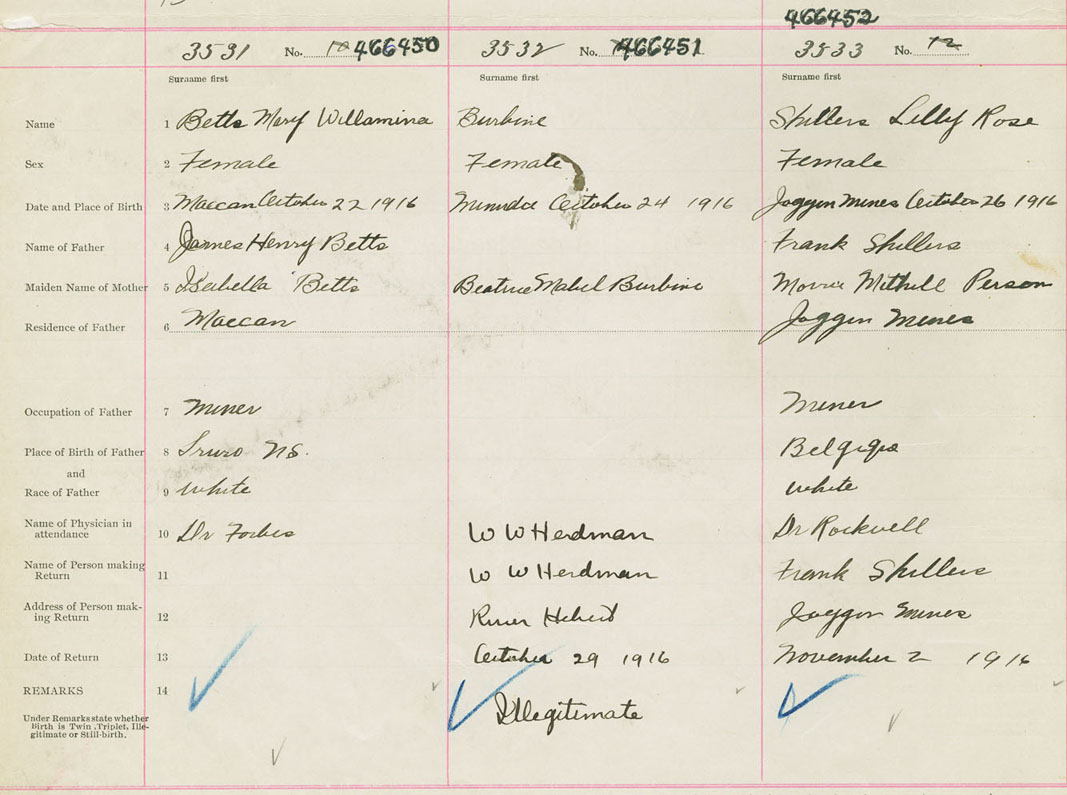 466452
3531 No. 466450 3532 No. 466451 3533 No. 12
Surname first Surname first Surname first
Name 1 Betts Mary Willamina Burbine Shillers Lilly Rose
Sex 2 Female Female Female
Date and Place of Birth 3 Maccan October 22 1916 Minudie October 24 1916 Joggin Mines October 26 1916
Name of Father 4 James Henry Betts Frank Shillers
Maiden Name of Mother 5 Isabella Betts Beatrice Mabel Burbine Mithell Person
Residence of Father 6 Maccan Joggin Mines
Occupation of Father 7 Miner Miner
Place of Birth of Father 8 Truro NS.
and
Race of Father 9 white white
Name of Physician in
attendance 10 Dr Forbes W W Herdman Dr Rockwell
Name of Person making
Return 11 W W Herdman Frank Shillers
Address of Person mak-
ing Return 12 River Hebert Joggin Mines
Date of Return 13 October 29 1916 November 2 1916
REMARKS 14 Illegitimate
Under Remarks state whether
Birth is Twin, Triplet, Ille-
gitimate or Still-birth.